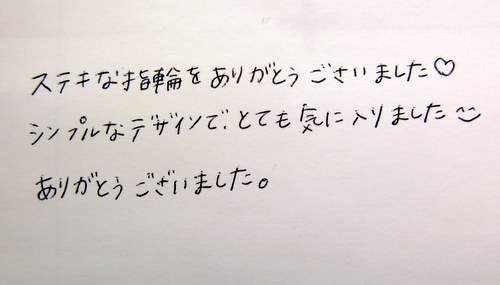 ステキな指輪をありがとうございました♡
シンプルなデザインで、とても気に入りました
ありがとうございました。